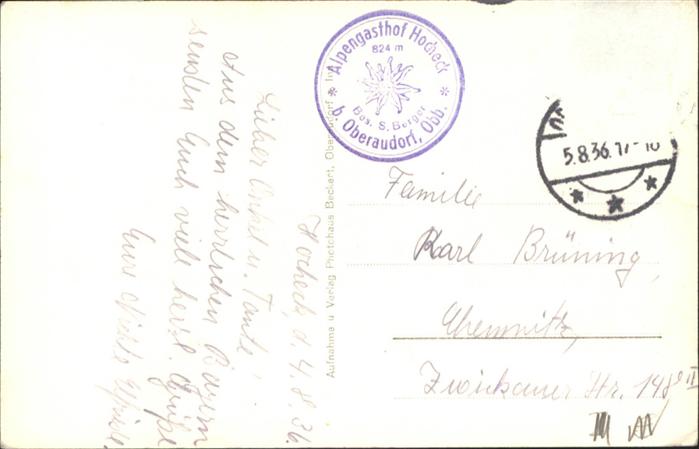 Hocheck, d. 4.8.36.
Lieber Onkel u. Tante!
Aus dem herrlichen Bayern
senden Euch viele herzl. Grüße
Eure Nichte
Alpengasthof Hocheck
824 m
Bes. S. Berger
b. Oberaudorf, Obb.
Aufnahme u Verlag Photohaus Beckert, Oberaudorf
5.8.36.17-18
Familie
Karl Brüning,
Chemnitz,
Zwickauer Str. 148